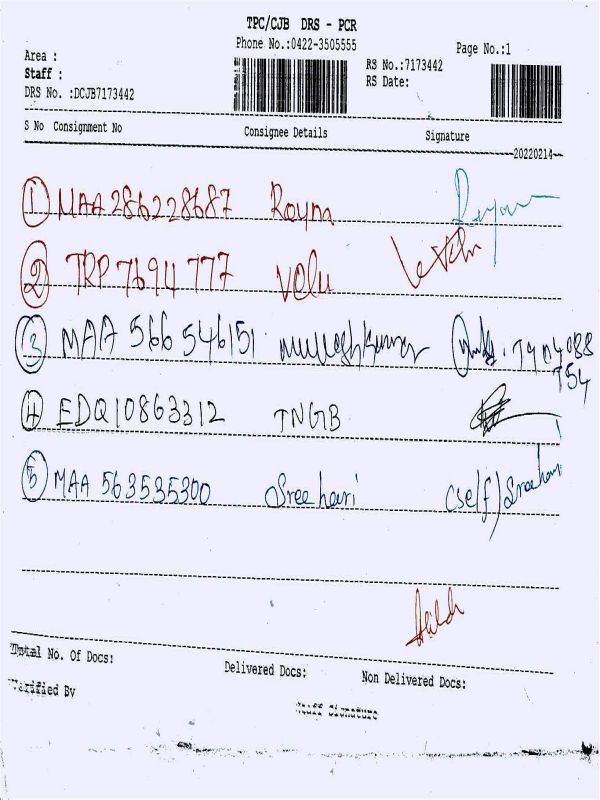 TPC/CJB DRS - PCR
Phone No.:0422-3505555
Page No.:1
Area :
Staff :
DRS No. :DCJB7173442
RS No.:7173442
RS Date:
S No Consignment No Consignee Details Signature
20220214
1 MAA286228687 Roym
2 TRP 7694 777 Velu
3 MAA 566 546151 7904088
754
4 EDQ10863312 TNGB
5 MAA 563535300 Sreehari (self) Sreehari
Total No. Of Docs: Delivered Docs: Non Delivered Docs:
Verified By Staff Signature